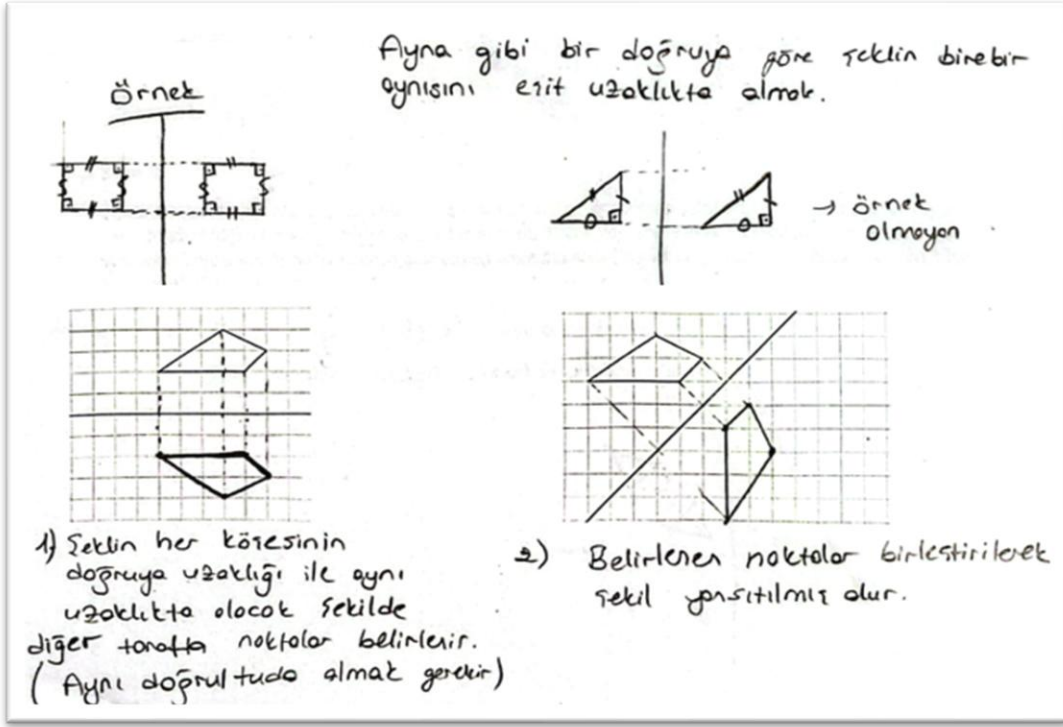 Ayna gibi bir doğruya göre şeklin birebir
aynısını eşit uzaklıkta almak.
Örnek
→ örnek
olmayan
1) Şeklin her köşesinin
doğruya uzaklığı ile aynı
uzaklıkta olacak şekilde
diğer tarafta noktalar belirlenir.
(Aynı doğrultuda olmak gerekir)
2) Belirlenen noktalar birleştirilerek
şekil yansıtılmış olur.